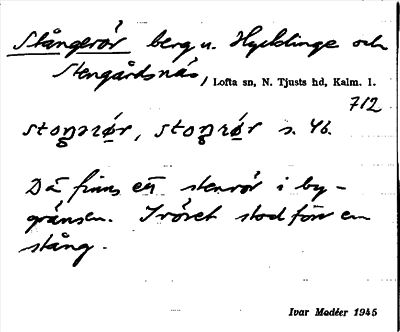 Stångerör berg u. Hycklinge och
Stengårdsnäs, Lofta sn, N. Tjusts hd, Kalm. l.
712
stoŋərør, stoŋrør s. 46.
Då finns ett stenrör i by-
gränsen. I röret stod förr en
stång.
Ivar Modéer 1945